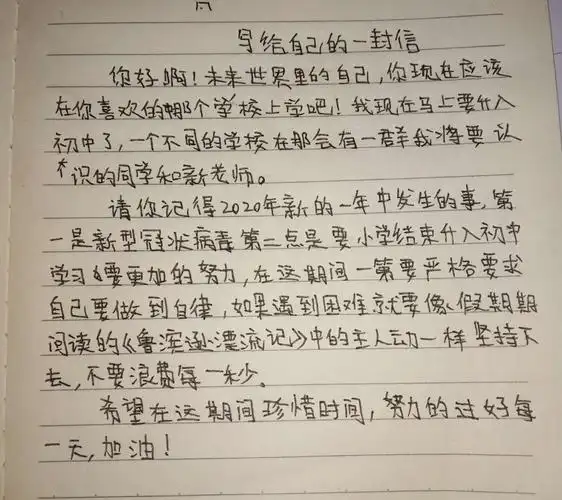 写给自己的一封信
你好啊!未来世界里的自己,你现在应该
在你喜欢的那个学校上学吧!我现在马上要升入
初中了,一个不同的学校在那会有一群我将要认
识的同学和新老师。
请你记得2020年新的一年中发生的事,第
一是新型冠状病毒第二点是要小学结束升入初中
学习要更加的努力,在这期间一第要严格要求
自己要做到自律,如果遇到困难就要像假期期
间读的《鲁滨逊漂流记》中的主人动一样坚持下
去,不要浪费每一秒。
希望在这期间珍惜时间,努力的过好每
一天,加油!